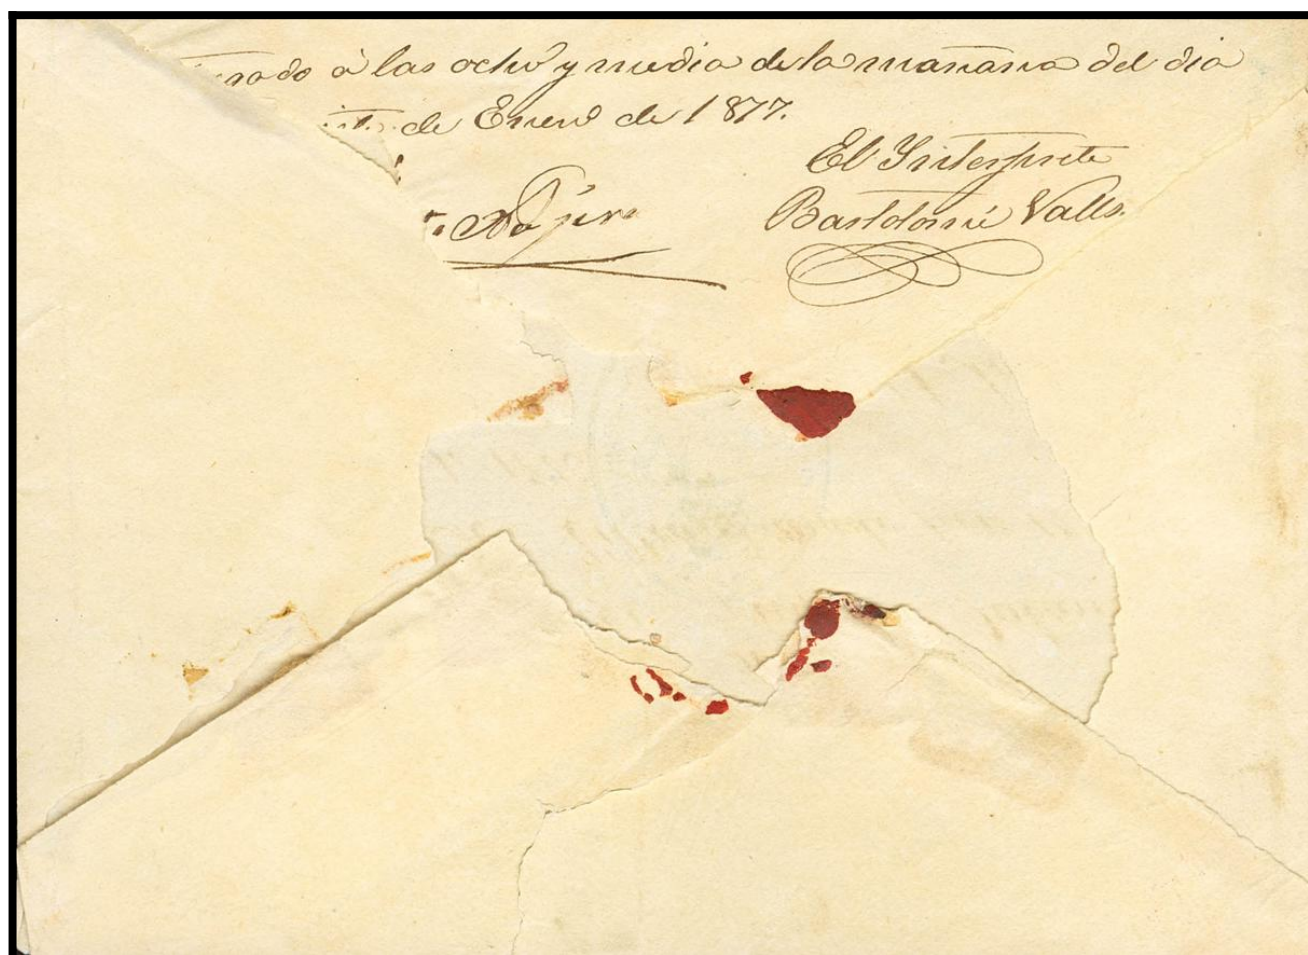 à las ocho y media de la mañana del dia
de Enero de 1877.
El Interprete
Bartolomé Valls.